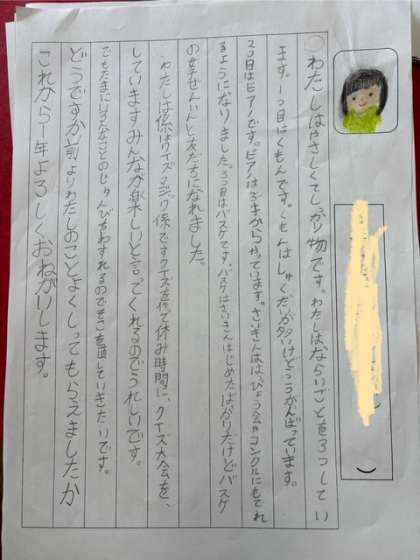 わたしはやさしくてしっかり物です。わたしはならいごとを3つしてい
ます。1つ目はくもんです。くもんはしゅくだいが多いけどがんばっています。
2つ目はピアノです。ピアノは からやっています。さいきんははっぴょう会やコンクルにもでれ
るようになりました。3つ目はバスケです。バスケはさいきんはじめたばかりだけどバスケ
の女子ぜんいんと友だちになれました。
わたしは係はクイズマジック係ですクイズを作て休み時間に、クイズ大会を、
していますみんなが楽しいと言ってくれるのでうれしいです。
でもたまにいろんなことのじゅんびをわすれるのでそこを直していきたいです。
どうですか前よりわたしのことよくしってもらえましたか
これから一年よろしくおねがいします。